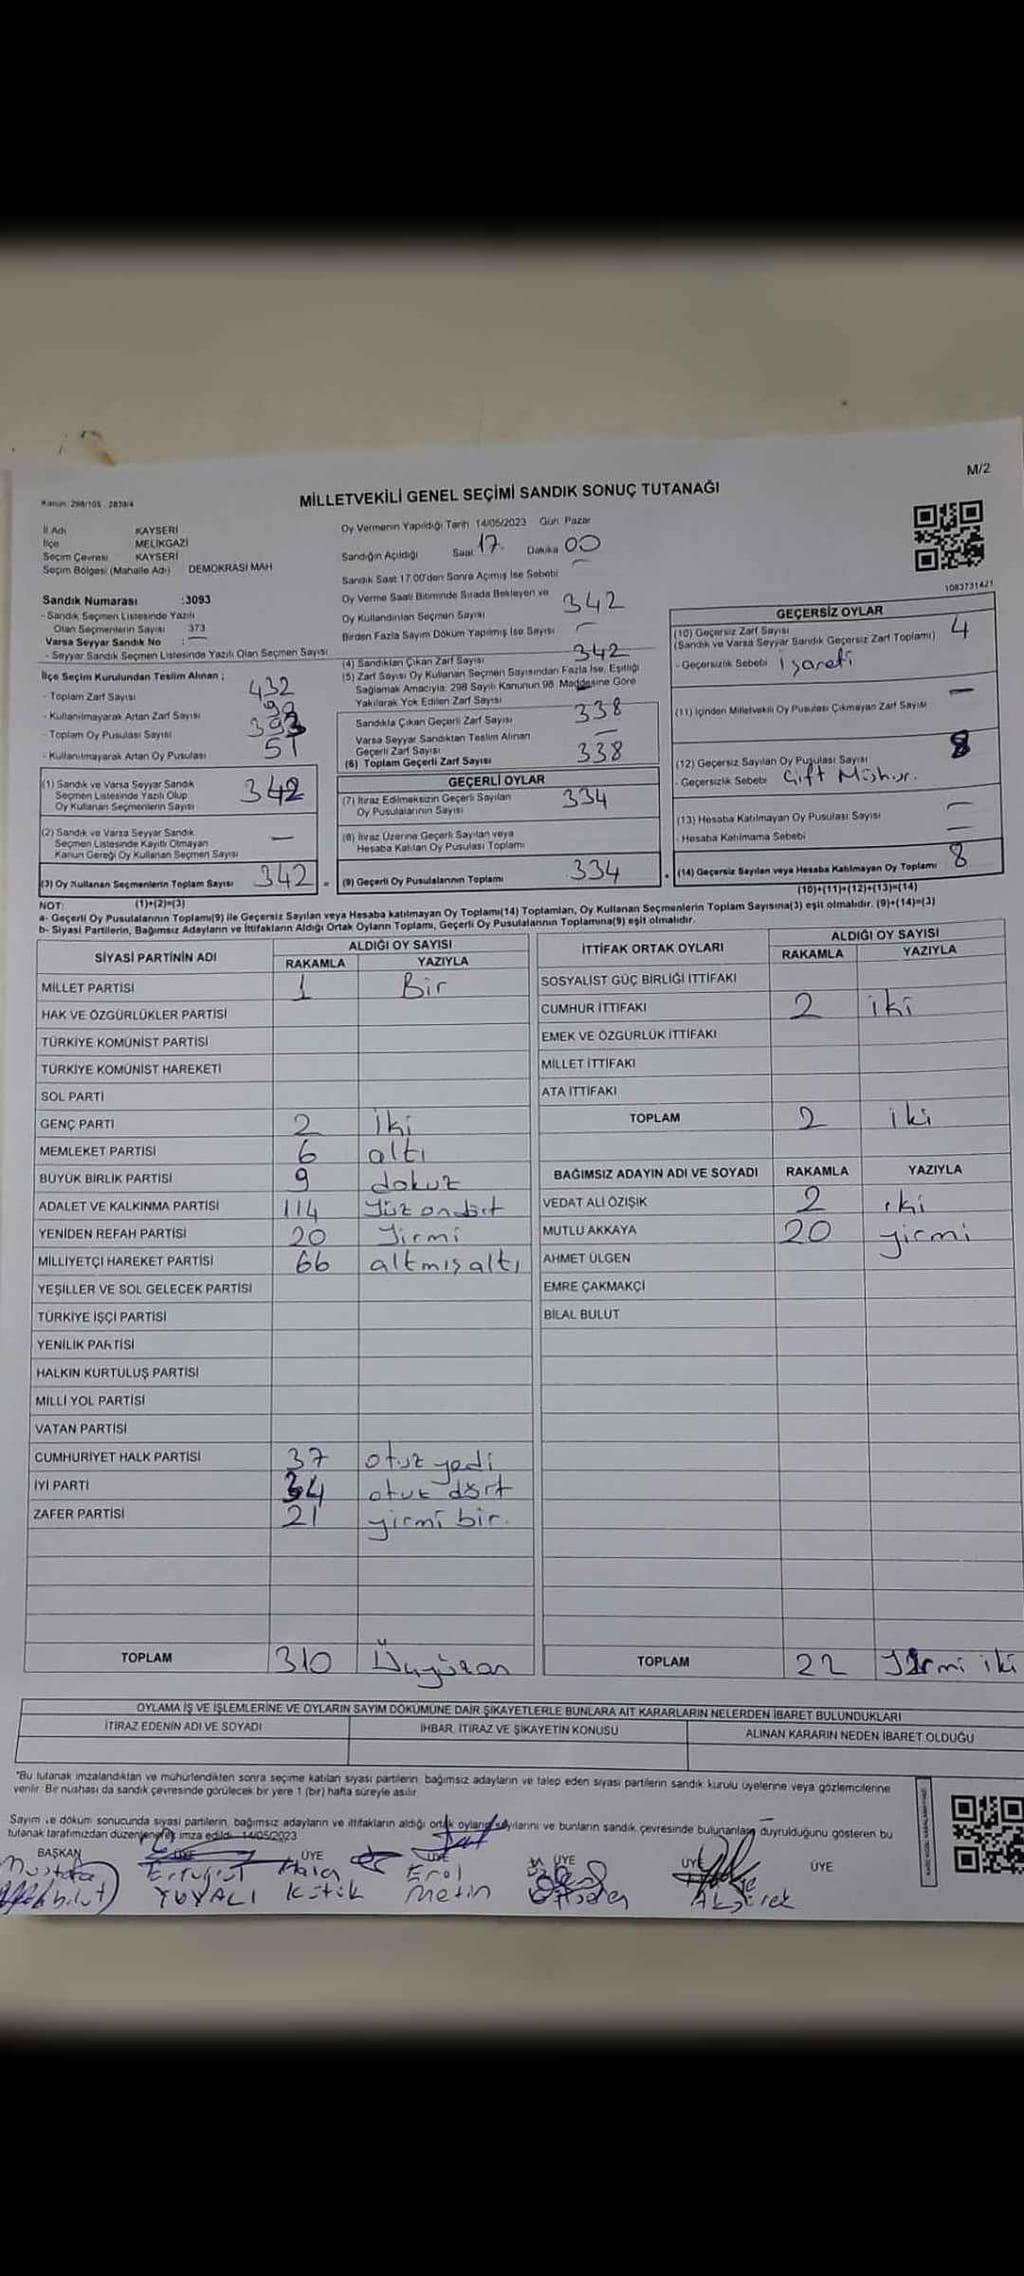 M/2
Kanun: 298/105 2839/4
MİLLETVEKİLİ GENEL SEÇİMİ SANDIK SONUÇ TUTANAĞI
İl Adı KAYSERİ
İlçe MELİKGAZİ
Seçim Çevresi KAYSERİ
Seçim Bölgesi (Mahalle Adı) DEMOKRASİ MAH
Sandık Numarası :3093
- Sandık Seçmen Listesinde Yazılı
Olan Seçmenlerin Sayısı 373
Varsa Seyyar Sandık No : —
- Seyyar Sandık Seçmen Listesinde Yazılı Olan Seçmen Sayısı
İlçe Seçim Kurulundan Teslim Alınan ;
- Toplam Zarf Sayısı 432
- Kullanılmayarak Artan Zarf Sayısı
- Toplam Oy Pusulası Sayısı
- Kullanılmayarak Artan Oy Pusulası 51
(1) Sandık ve Varsa Seyyar Sandık
Seçmen Listesinde Yazılı Olup
Oy Kullanan Seçmenlerin Sayısı 342
(2) Sandık ve Varsa Seyyar Sandık
Seçmen Listesinde Kayıtlı Olmayan
Kanun Gereği Oy Kullanan Seçmen Sayısı —
(3) Oy Kullanan Seçmenlerin Toplam Sayısı 342
(1)+(2)=(3)
Oy Vermenin Yapıldığı Tarih 14/05/2023 Gün Pazar
Sandığın Açıldığı Saat 17 Dakika 00
Sandık Saat 17.00'den Sonra Açımış İse Sebebi —
Oy Verme Saati Bitiminde Sırada Bekleyen ve
Oy Kullandırılan Seçmen Sayısı 342
Birden Fazla Sayım Döküm Yapılmış İse Sayısı —
(4) Sandıktan Çıkan Zarf Sayısı 342
(5) Zarf Sayısı Oy Kullanan Seçmen Sayısından Fazla İse, Eşitliği
Sağlamak Amacıyla, 298 Sayılı Kanunun 98. Maddesine Göre
Yakılarak Yok Edilen Zarf Sayısı
Sandıkta Çıkan Geçerli Zarf Sayısı 338
Varsa Seyyar Sandıktan Teslim Alınan
Geçerli Zarf Sayısı —
(6) Toplam Geçerli Zarf Sayısı 338
GEÇERLİ OYLAR
(7) İtiraz Edilmeksizin Geçerli Sayılan
Oy Pusulalarının Sayısı 334
(8) İtiraz Üzerine Geçerli Sayılan veya
Hesaba Katılan Oy Pusulası Toplamı
(9) Geçerli Oy Pusulalarının Toplamı 334
1083731421
GEÇERSİZ OYLAR
(10) Geçersiz Zarf Sayısı
(Sandık ve Varsa Seyyar Sandık Geçersiz Zarf Toplamı) 4
- Geçersizlik Sebebi işareti
(11) İçinden Milletvekili Oy Pusulası Çıkmayan Zarf Sayısı —
(12) Geçersiz Sayılan Oy Pusulası Sayısı 8
- Geçersizlik Sebebi Çift Mühür.
(13) Hesaba Katılmayan Oy Pusulası Sayısı —
- Hesaba Katılmama Sebebi —
(14) Geçersiz Sayılan veya Hesaba Katılmayan Oy Toplamı 8
(10)+(11)+(12)+(13)=(14)
NOT:
a- Geçerli Oy Pusulalarının Toplamı(9) ile Geçersiz Sayılan veya Hesaba katılmayan Oy Toplamı(14) Toplamları, Oy Kullanan Seçmenlerin Toplam Sayısına(3) eşit olmalıdır. (9)+(14)=(3)
b- Siyasi Partilerin, Bağımsız Adayların ve İttifakların Aldığı Ortak Oyların Toplamı, Geçerli Oy Pusulalarının Toplamına(9) eşit olmalıdır.
SİYASİ PARTİNİN ADI ALDIĞI OY SAYISI
RAKAMLA YAZIYLA
MİLLET PARTİSİ 1 Bir
HAK VE ÖZGÜRLÜKLER PARTİSİ
TÜRKİYE KOMÜNİST PARTİSİ
TÜRKİYE KOMÜNİST HAREKETİ
SOL PARTİ
GENÇ PARTİ 2 İki
MEMLEKET PARTİSİ 6 altı
BÜYÜK BİRLİK PARTİSİ 9 dokuz
ADALET VE KALKINMA PARTİSİ 114 Yüz ondört
YENİDEN REFAH PARTİSİ 20 Yirmi
MİLLİYETÇİ HAREKET PARTİSİ 66 altmış altı
YEŞİLLER VE SOL GELECEK PARTİSİ
TÜRKİYE İŞÇİ PARTİSİ
YENİLİK PARTİSİ
HALKIN KURTULUŞ PARTİSİ
MİLLİ YOL PARTİSİ
VATAN PARTİSİ
CUMHURİYET HALK PARTİSİ 37 otuz yedi
İYİ PARTİ 34 otuz dört
ZAFER PARTİSİ 21 yirmi bir.
TOPLAM 310 Üçyüzon
İTTİFAK ORTAK OYLARI ALDIĞI OY SAYISI
RAKAMLA YAZIYLA
SOSYALİST GÜÇ BİRLİĞİ İTTİFAKI
CUMHUR İTTİFAKI 2 iki
EMEK VE ÖZGÜRLÜK İTTİFAKI
MİLLET İTTİFAKI
ATA İTTİFAKI
TOPLAM 2 iki
BAĞIMSIZ ADAYIN ADI VE SOYADI RAKAMLA YAZIYLA
VEDAT ALİ ÖZIŞIK 2 iki
MUTLU AKKAYA 20 yirmi
AHMET ÜLGEN
EMRE ÇAKMAKÇİ
BİLAL BULUT
TOPLAM 22 Yirmi iki
OYLAMA İŞ VE İŞLEMLERİNE VE OYLARIN SAYIM DÖKÜMÜNE DAİR ŞİKAYETLERLE BUNLARA AİT KARARLARIN NELERDEN İBARET BULUNDUKLARI
İTİRAZ EDENİN ADI VE SOYADI İHBAR, İTİRAZ VE ŞİKAYETİN KONUSU ALINAN KARARIN NEDEN İBARET OLDUĞU
*Bu tutanak imzalandıktan ve mühürlendikten sonra seçime katılan siyasi partilerin, bağımsız adayların ve talep eden siyasi partilerin sandık kurulu üyelerine veya gözlemcilerine
verilir. Bir nüshası da sandık çevresinde görülecek bir yere 1 (bir) hafta süreyle asılır.
Sayım ve döküm sonucunda siyasi partilerin, bağımsız adayların ve ittifakların aldığı ortak oyların sayılarını ve bunların sandık çevresinde bulunanlara duyrulduğunu gösteren bu
tutanak tarafımızdan düzenlenerek imza edildi. 14/05/2023
BAŞKAN ÜYE ÜYE ÜYE ÜYE ÜYE ÜYE
Mustafa Ertuğrul Erol
YUVALI Kütük Metin Akşerek